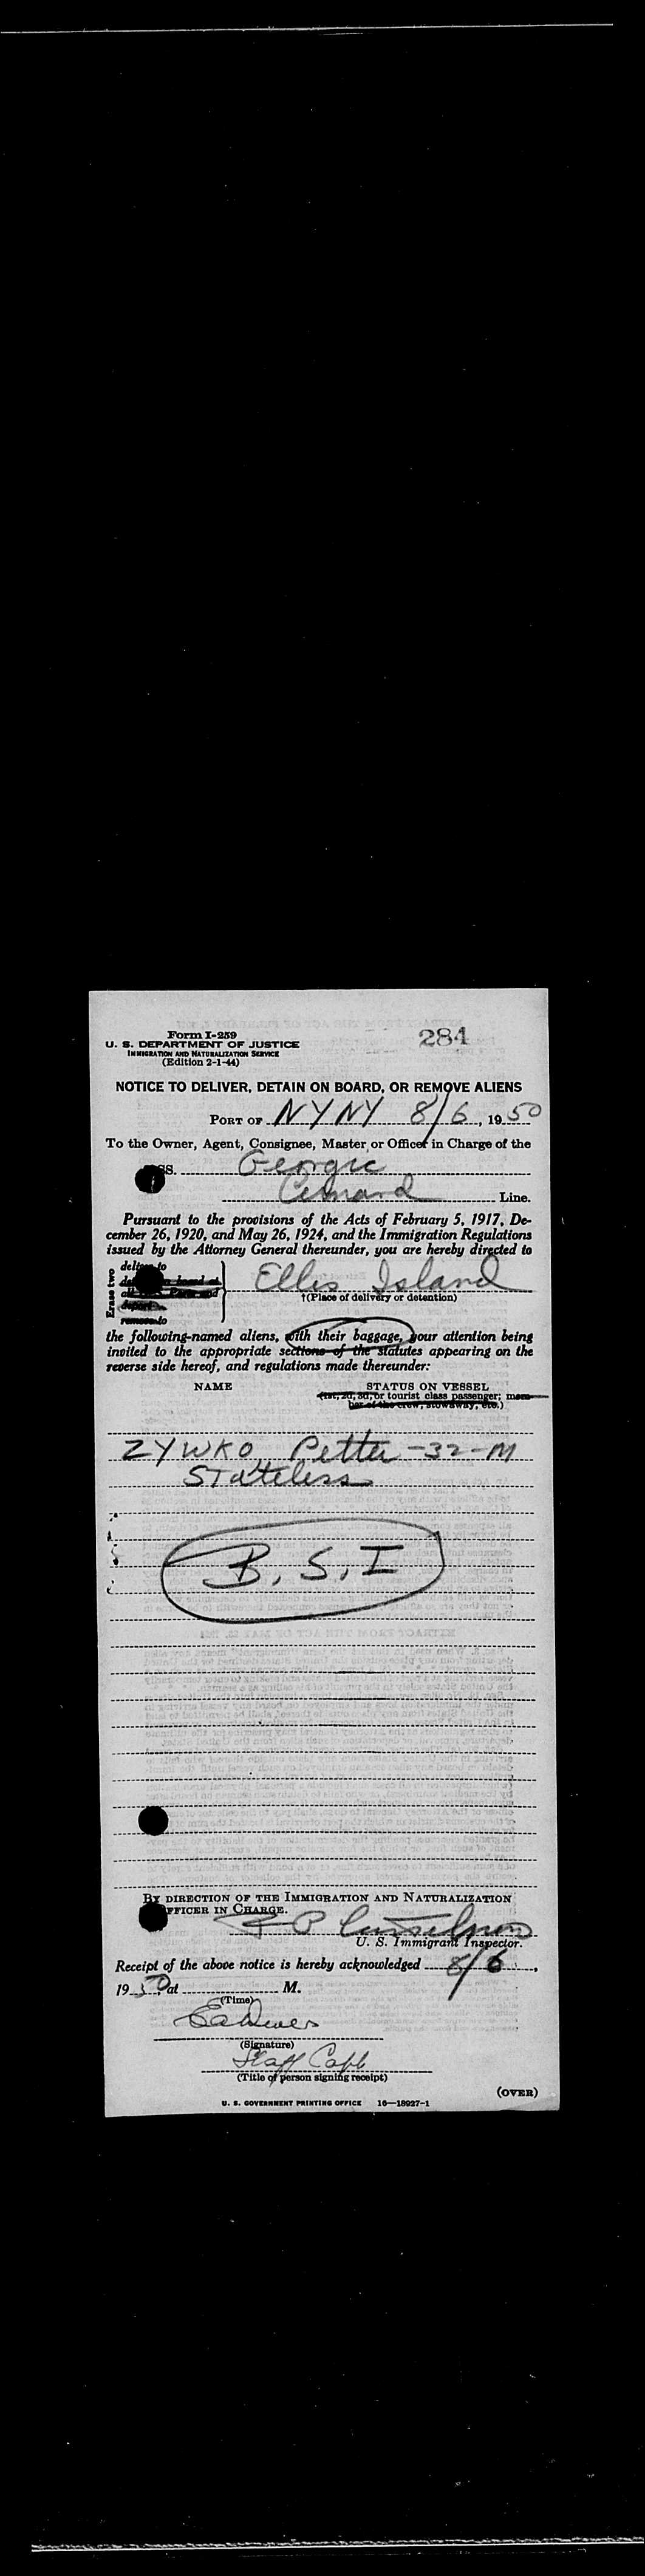 Form I-259
284
U. S. DEPARTMENT OF JUSTICE
IMMIGRATION AND NATURALIZATION SERVICE
(Edition 2-1-44)
NOTICE TO DELIVER, DETAIN ON BOARD, OR REMOVE ALIENS
PORT OF NYNY 8/6, 1950
To the Owner, Agent, Consignee, Master or Officer in Charge of the
SS. Georgic
Cunard Line.
Pursuant to the provisions of the Acts of February 5, 1917, De-
cember 26, 1920, and May 26, 1924, and the Immigration Regulations
issued by the Attorney General thereunder, you are hereby directed to
Erase two
deliver to
Ellis Island
†(Place of delivery or detention)
remove to
the following-named aliens, with their baggage, your attention being
invited to the appropriate sections of the statutes appearing on the
reverse side hereof, and regulations made thereunder:
NAME STATUS ON VESSEL
(1st, 2d, 3d, or tourist class passenger; mem-
ber of the crew, stowaway, etc.)
ZYWKO, Petter - 32 - M
Stateless
B. S. I
BY DIRECTION OF THE IMMIGRATION AND NATURALIZATION
OFFICER IN CHARGE.
U. S. Immigrant Inspector.
Receipt of the above notice is hereby acknowledged 8/6,
1950, at M.
(Time)
(Signature)
Staff Capt
(Title of person signing receipt)
(OVER)
U. S. GOVERNMENT PRINTING OFFICE 16—18927-1